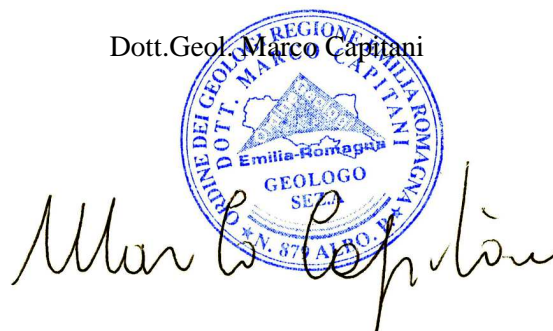 Dott.Geol. Marco Capitani
ORDINE DEI GEOLOGI REGIONE EMILIA ROMAGNA
DOTT. MARCO CAPITANI
Emilia-Romagna
GEOLOGO
SEZ.A
N. 879 ALBO.
Marco Capitani